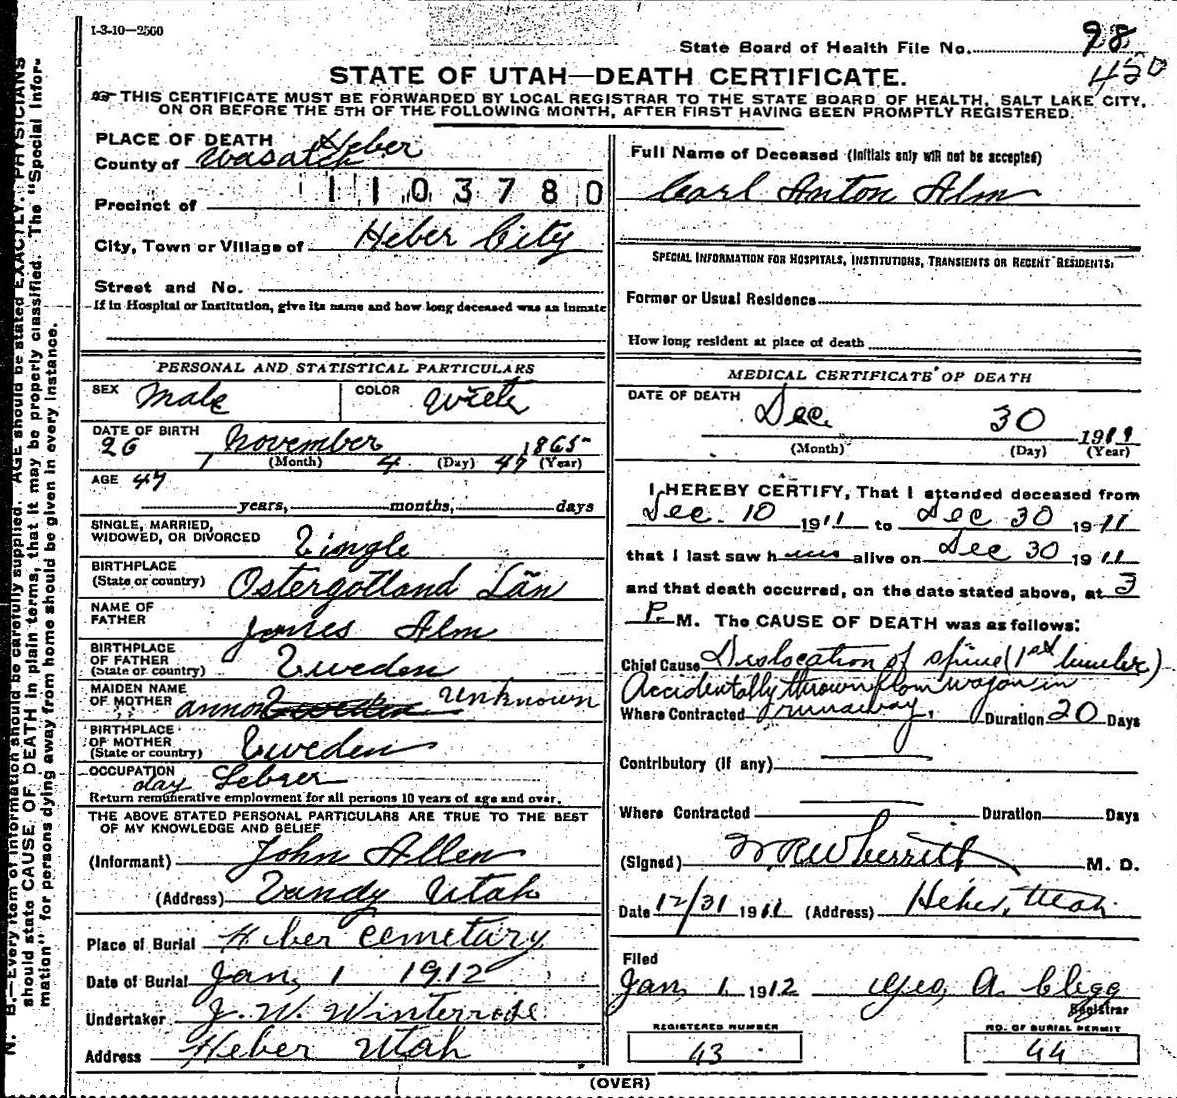 1-3-10—2500
State Board of Health File No. 98
450
STATE OF UTAH—DEATH CERTIFICATE.
THIS CERTIFICATE MUST BE FORWARDED BY LOCAL REGISTRAR TO THE STATE BOARD OF HEALTH, SALT LAKE CITY,
ON OR BEFORE THE 5TH OF THE FOLLOWING MONTH, AFTER FIRST HAVING BEEN PROMPTLY REGISTERED.
PLACE OF DEATH Heber
County of Wasatch
1103780
Precinct of
City, Town or Village of Heber City
Street and No.
If in Hospital or Institution, give its name and how long deceased was an inmate
PERSONAL AND STATISTICAL PARTICULARS
SEX Male COLOR Wiete
DATE OF BIRTH
26 November 1865
(Month) 4 (Day) 47 (Year)
AGE 47
years, months, days
SINGLE, MARRIED,
WIDOWED, OR DIVORCED Single
BIRTHPLACE
(State or country) Ostergotland Län
NAME OF
FATHER Jones Alm
BIRTHPLACE
OF FATHER Sweden
(State or country)
MAIDEN NAME
OF MOTHER annon Unknown
BIRTHPLACE
OF MOTHER Sweden
(State or country)
OCCUPATION
day Lebrer
Return remunerative employment for all persons 10 years of age and over.
THE ABOVE STATED PERSONAL PARTICULARS ARE TRUE TO THE BEST
OF MY KNOWLEDGE AND BELIEF
(Informant) John Allen
(Address) Sandy Utah
Place of Burial Heber Cemetury
Date of Burial Jan, 1 1912
Undertaker J. W. Winterrose
Address Heber Utah
Full Name of Deceased (Initials only will not be accepted)
Carl Anton Alm
SPECIAL INFORMATION FOR HOSPITALS, INSTITUTIONS, TRANSIENTS OR RECENT RESIDENTS:
Former or Usual Residence
How long resident at place of death
MEDICAL CERTIFICATE OF DEATH
DATE OF DEATH
Dec. 30 1911
(Month) (Day) (Year)
I HEREBY CERTIFY, That I attended deceased from
Dec. 10 1911 to Dec 30 1911
that I last saw him alive on Dec 30 1911
and that death occurred, on the date stated above, at 3
P. M. The CAUSE OF DEATH was as follows:
Chief Cause Dislocation of spine (1st lumber)
Accidentally thrown from wagon in
Where Contracted runaway, Duration 20 Days
Contributory (if any)
Where Contracted Duration Days
(Signed) W R Wherritt M. D.
Date 12/31 1911 (Address) Heber, Utah
Filed
Jan, 1 1912 Geo, A. Clegg
Registrar
REGISTERED NUMBER
43
NO. OF BURIAL PERMIT
44
(OVER)
N. B.—Every item of information should be carefully supplied. AGE should be stated EXACTLY. PHYSICIANS
should state CAUSE OF DEATH in plain terms, that it may be properly classified. The "Special Infor-
mation" for persons dying away from home should be given in every instance.